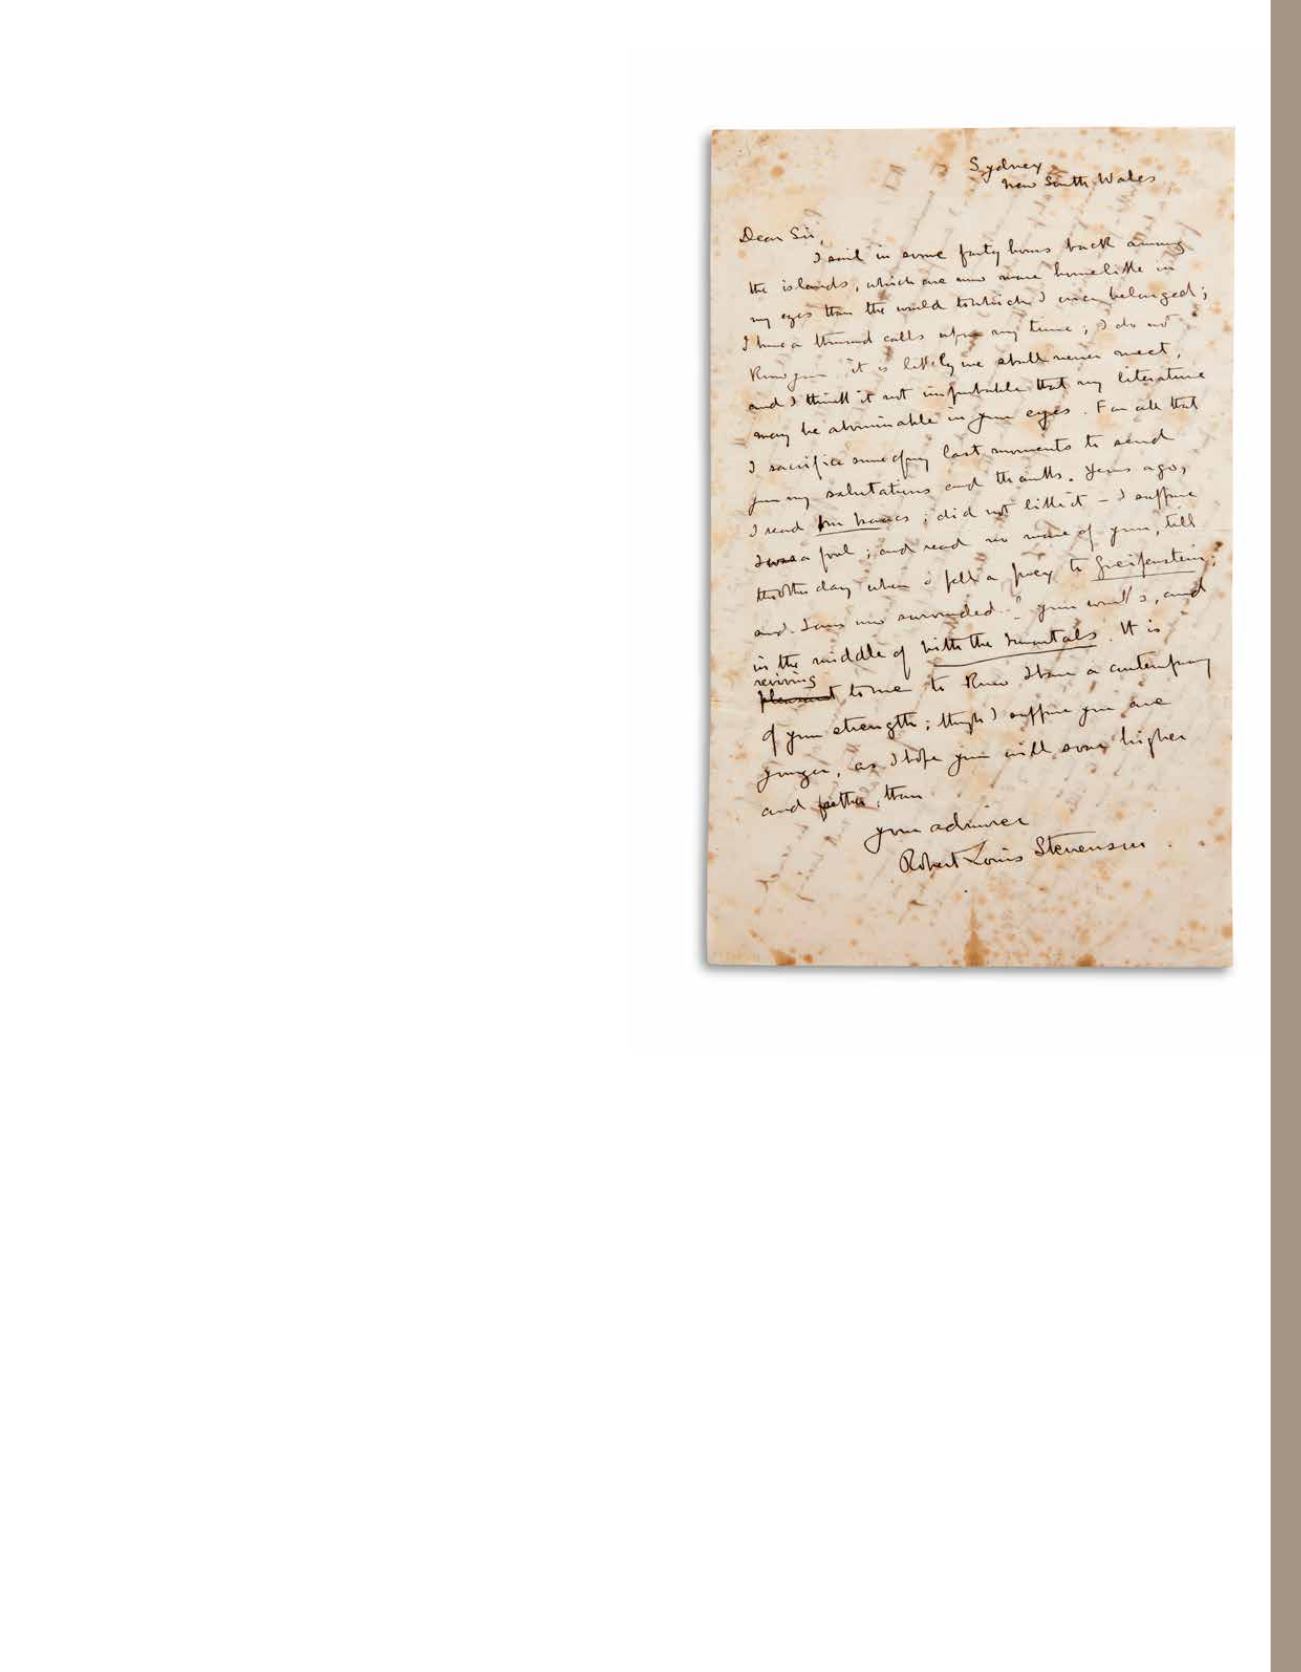 Sydney
New South Wales
Dear Sir,
I sail in some forty hours back among
the islands, which are now more homelike in
my eyes than the world to which I once belonged;
I have a thousand calls upon my time; I do not
know you it is likely we shall never meet,
and I think it not improbable that my literature
may be abominable in your eyes. For all that
I sacrifice some of my last moments to send
you my salutations and thanks. Years ago,
I read Mr Isaacs; did not like it – I suppose
I was a fool; and read no more of yours, till
the other day when I fell a prey to Greifenstein;
and I am now surrounded by your works, and
in the middle of With the Immortals. It is
reviving
pleasant to me to know I have a contemporary
of your strength; though I suppose you are
younger, as I hope you will soar higher
and farther, than
your admirer
Robert Louis Stevenson